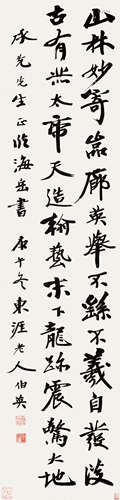 山林妙寄嵒廊英舉不繇不羲自發淡
古有太帝天造翰藝末下龍跡震驚大地
承先先生正臨海岳書 庚午冬東涯老人伯英